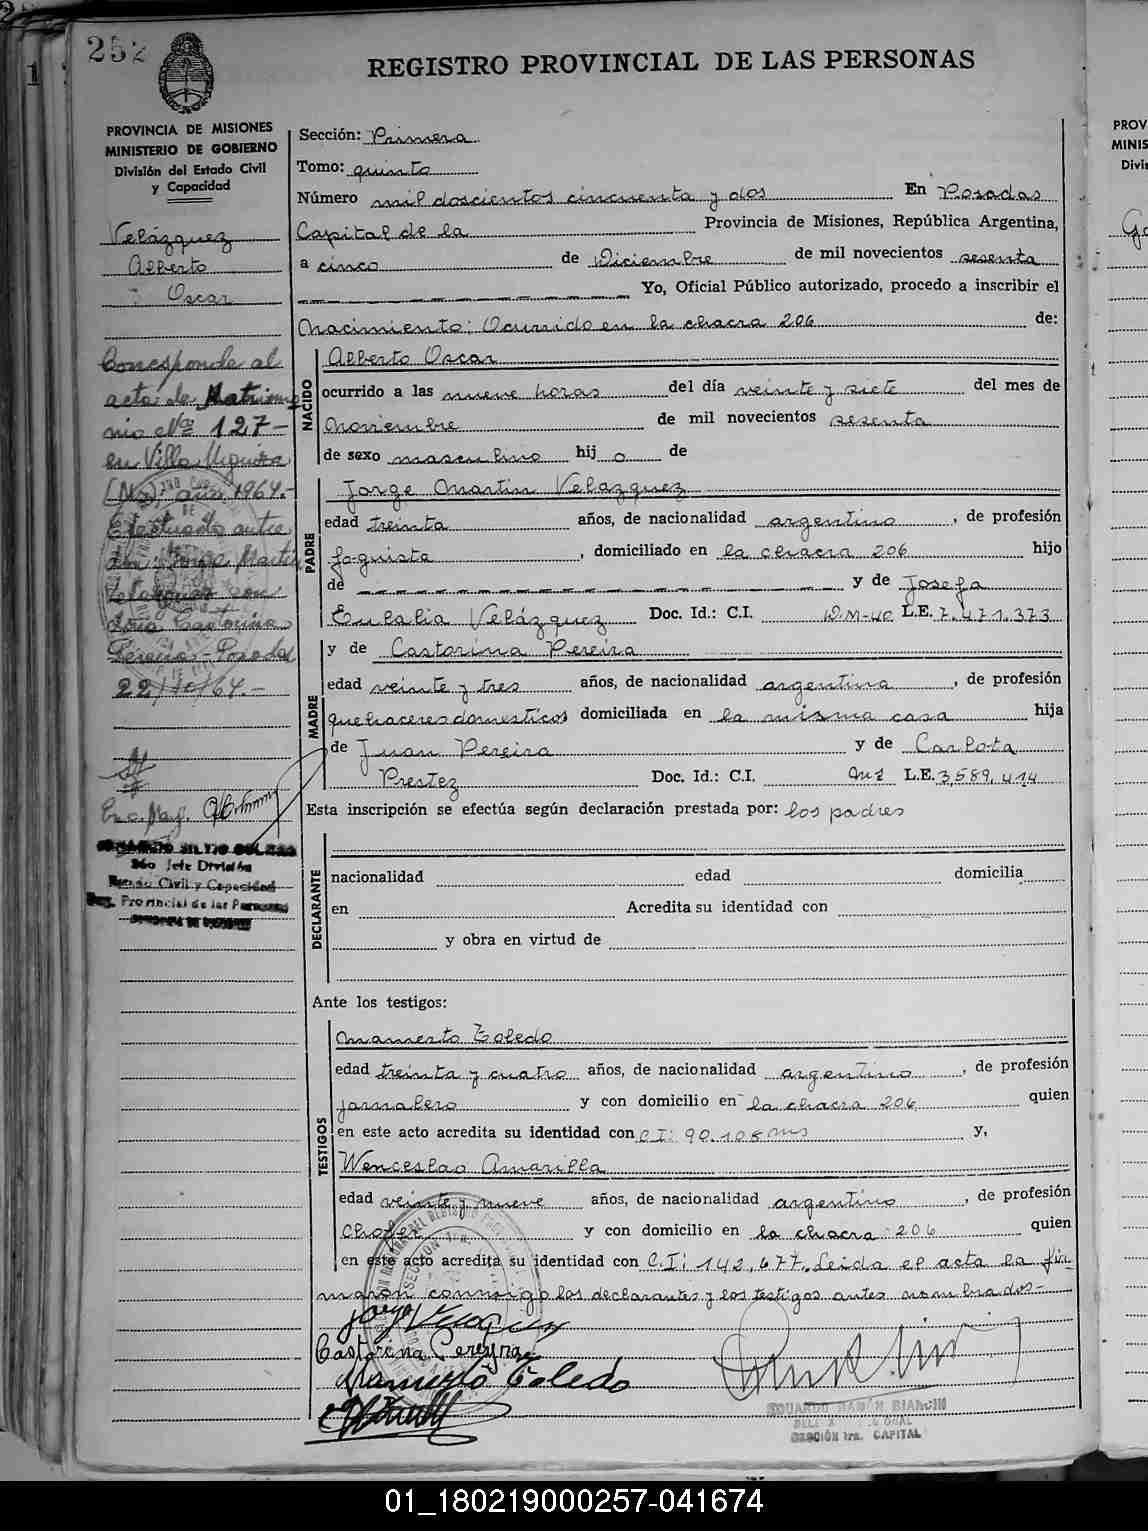 252
REGISTRO PROVINCIAL DE LAS PERSONAS
PROVINCIA DE MISIONES
MINISTERIO DE GOBIERNO
División del Estado Civil
y Capacidad
Velázquez
Alberto
Oscar
Corresponde al
acta de Matrimo
nio Nº 127-
en Villa Urquiza
año 1964.-
Efectuado entre
don Jorge Martín
Velázquez con
doña Castorina
Pereira - Posadas
22/10/64.-
Enc. 
2do Jefe División
Estado Civil y Capacidad
Reg. Provincial de las Personas
Sección: Primera
Tomo: quinto
Número mil doscientos cincuenta y dos En Posadas
Capital de la Provincia de Misiones, República Argentina,
a cinco de Diciembre de mil novecientos sesenta
Yo, Oficial Público autorizado, procedo a inscribir el
Nacimiento: Ocurrido en la chacra 206 de:
NACIDO
Alberto Oscar
ocurrido a las nueve horas del día veinte y siete del mes de
Noviembre de mil novecientos sesenta
de sexo masculino hij o de
PADRE
Jorge Martin Velazquez
edad treinta años, de nacionalidad argentino, de profesión
foguista, domiciliado en la chacra 206 hijo
de y de Josefa
Eulalia Velázquez Doc. Id.: C.I. DM-40 L.E. 7.471.373
MADRE
y de Castorina Pereira
edad veinte y tres años, de nacionalidad argentina, de profesión
quehaceres domesticos domiciliada en la misma casa hija
de Juan Pereira y de Carlota
Prestez Doc. Id.: C.I. Mz L.E. 3,589,414
Esta inscripción se efectúa según declaración prestada por: los padres
DECLARANTE
nacionalidad edad domicilia
en Acredita su identidad con
y obra en virtud de
Ante los testigos:
TESTIGOS
Mamerto Toledo
edad treinta y cuatro años, de nacionalidad argentino, de profesión
jornalero y con domicilio en la chacra 206 quien
en este acto acredita su identidad con C.I: 90.108 mns y,
Wenceslao Amarilla
edad veinte y nueve años, de nacionalidad argentino, de profesión
Chofer y con domicilio en la chacra 206 quien
en este acto acredita su identidad con C.I: 142,677. Leida el acta la fir
maron conmigo los declarantes y los testigos antes nombrados-
Jorge Velazquez
Castorina Pereyra
Mamerto Toledo
EDUARDO RAMÓN BIANCHI
SECCIÓN 1ra. CAPITAL
PROV
MINIS
Divi
01_180219000257-041674